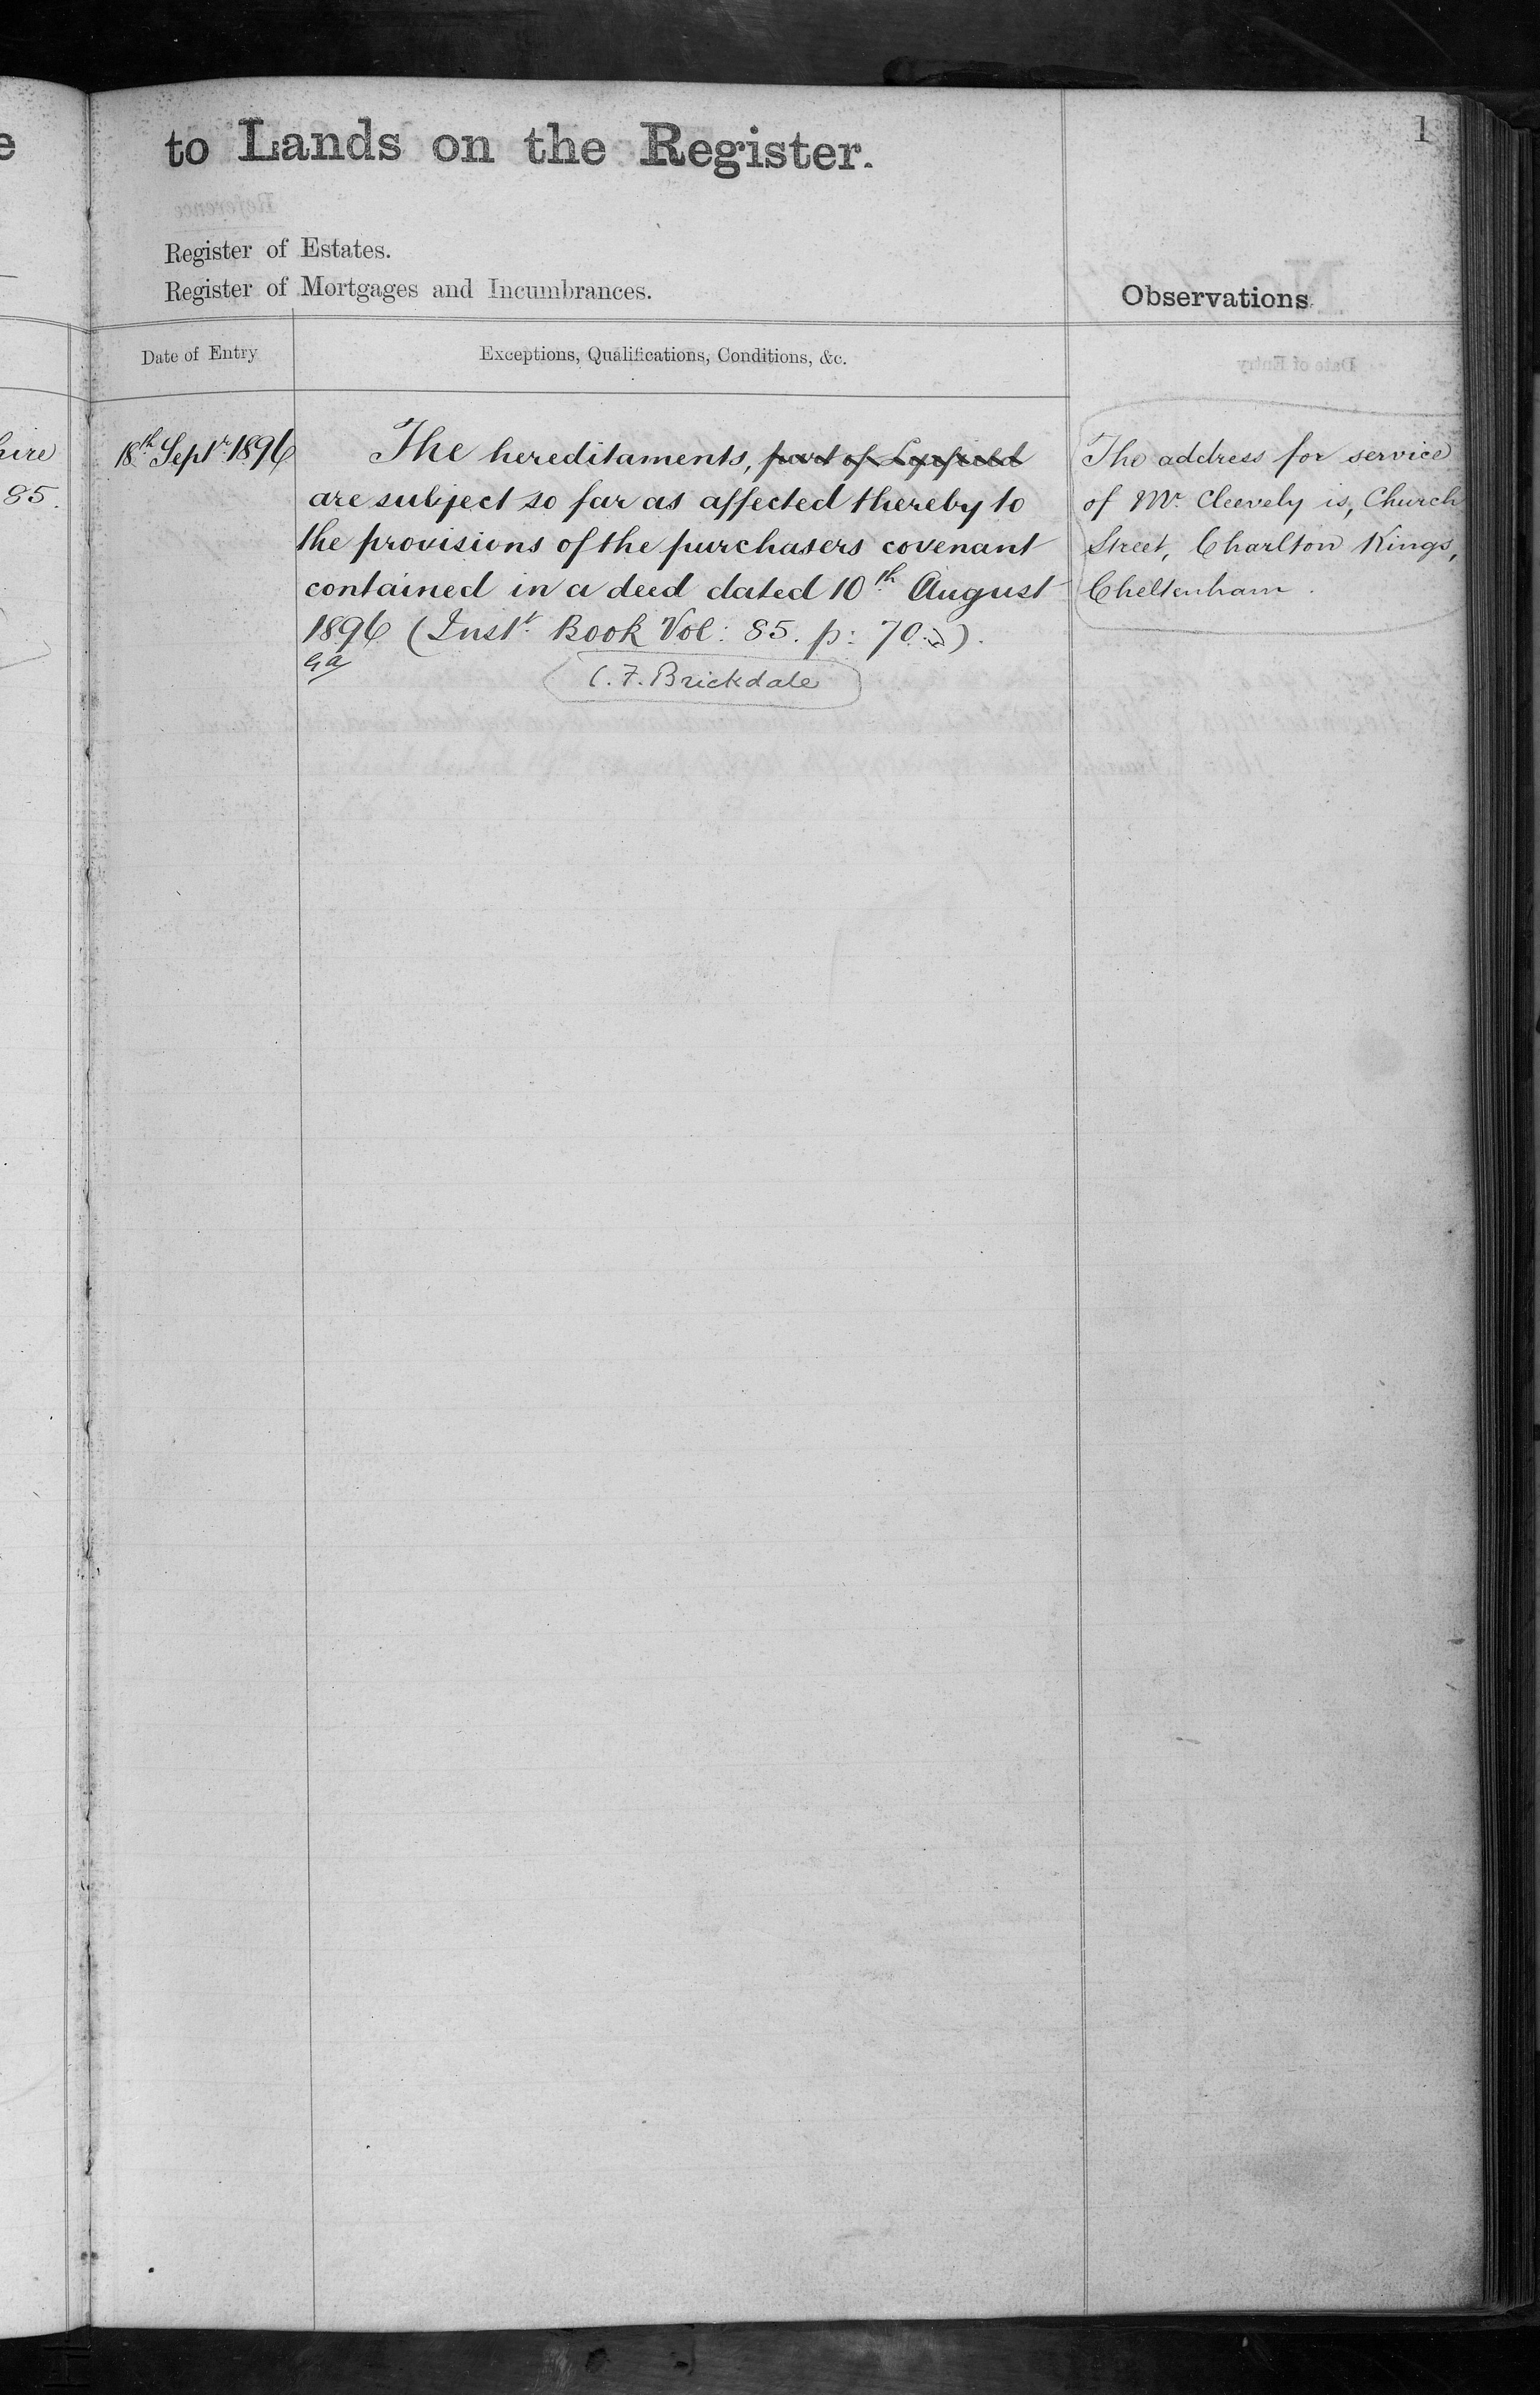 e
to Lands on the Register.
1
Register of Estates.
Register of Mortgages and Incumbrances.
Observations
Date of Entry
Exceptions, Qualifications, Conditions, &c.
hire
85.
18th Septr. 1896
The hereditaments, part of Lyefield
are subject so far as affected thereby to
the provisions of the purchasers covenant
contained in a deed dated 10th August
1896 (Instt. Book Vol: 85. p: 70.)
C. F. Brickdale
The address for service
of Mr. Cleevely is, Church
Street, Charlton Kings,
Cheltenham.